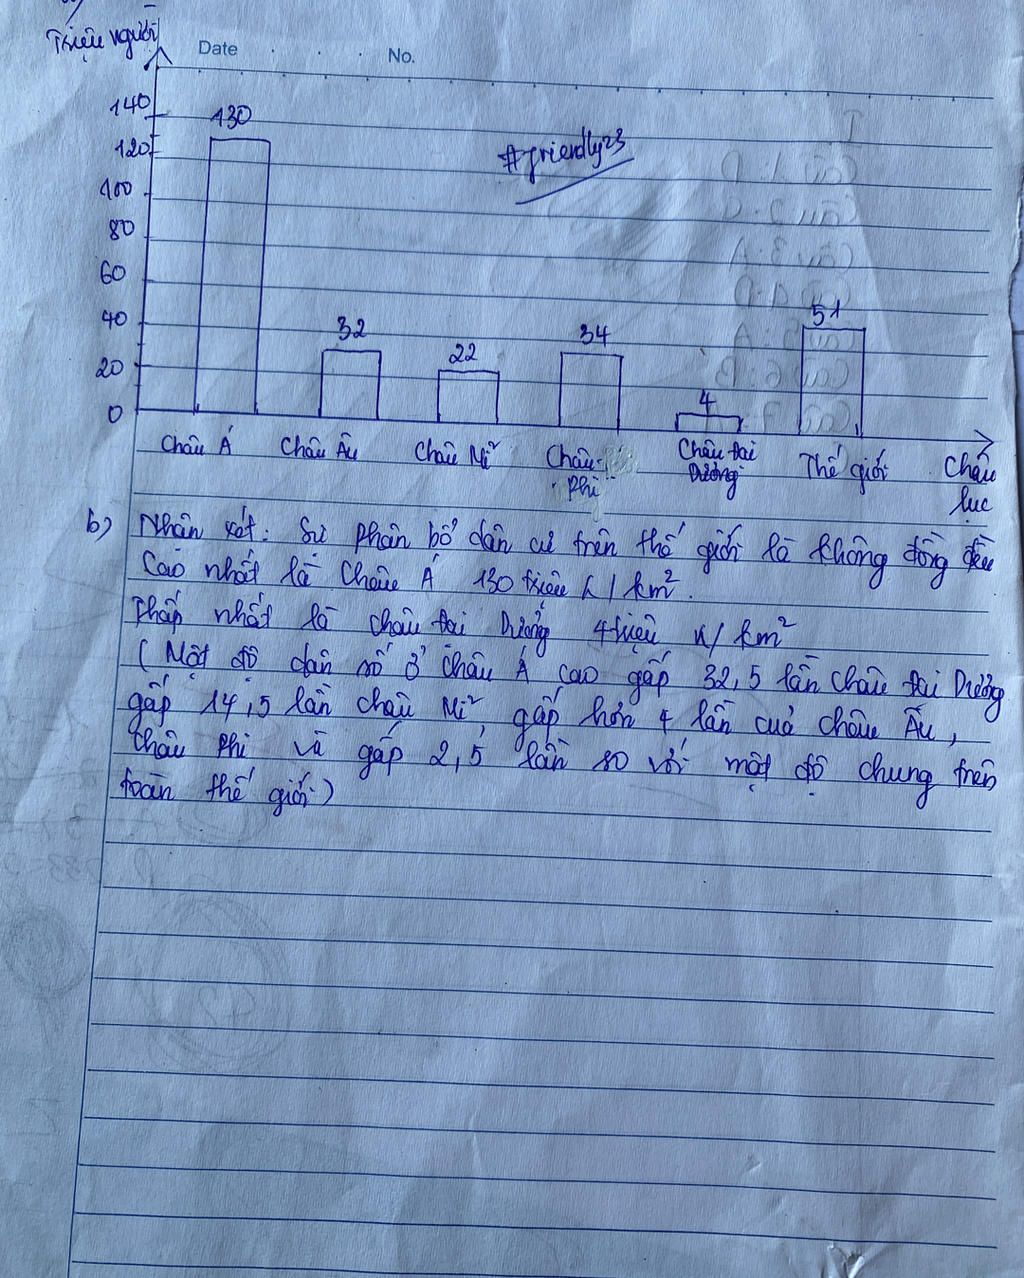 Triệu người
Date No.
140
130
120
#friendly23
100
80
60
40
51
32
34
22
20
4
0
Châu Á Châu Âu Châu Mĩ Châu Phi Châu Đại Dương Thế giới Châu lục
b) Nhận xét: Sự phân bố dân cư trên thế giới là không đồng đều
Cao nhất là Châu Á 130 triệu n/km²
Thấp nhất là châu Đại Dương 4 triệu n/km²
(Mật độ dân số ở Châu Á cao gấp 32,5 lần Châu Đại Dương
gấp 14,5 lần châu Mĩ, gấp hơn 4 lần của Châu Âu,
Châu Phi và gấp 2,5 lần so với mật độ chung trên
toàn thế giới)